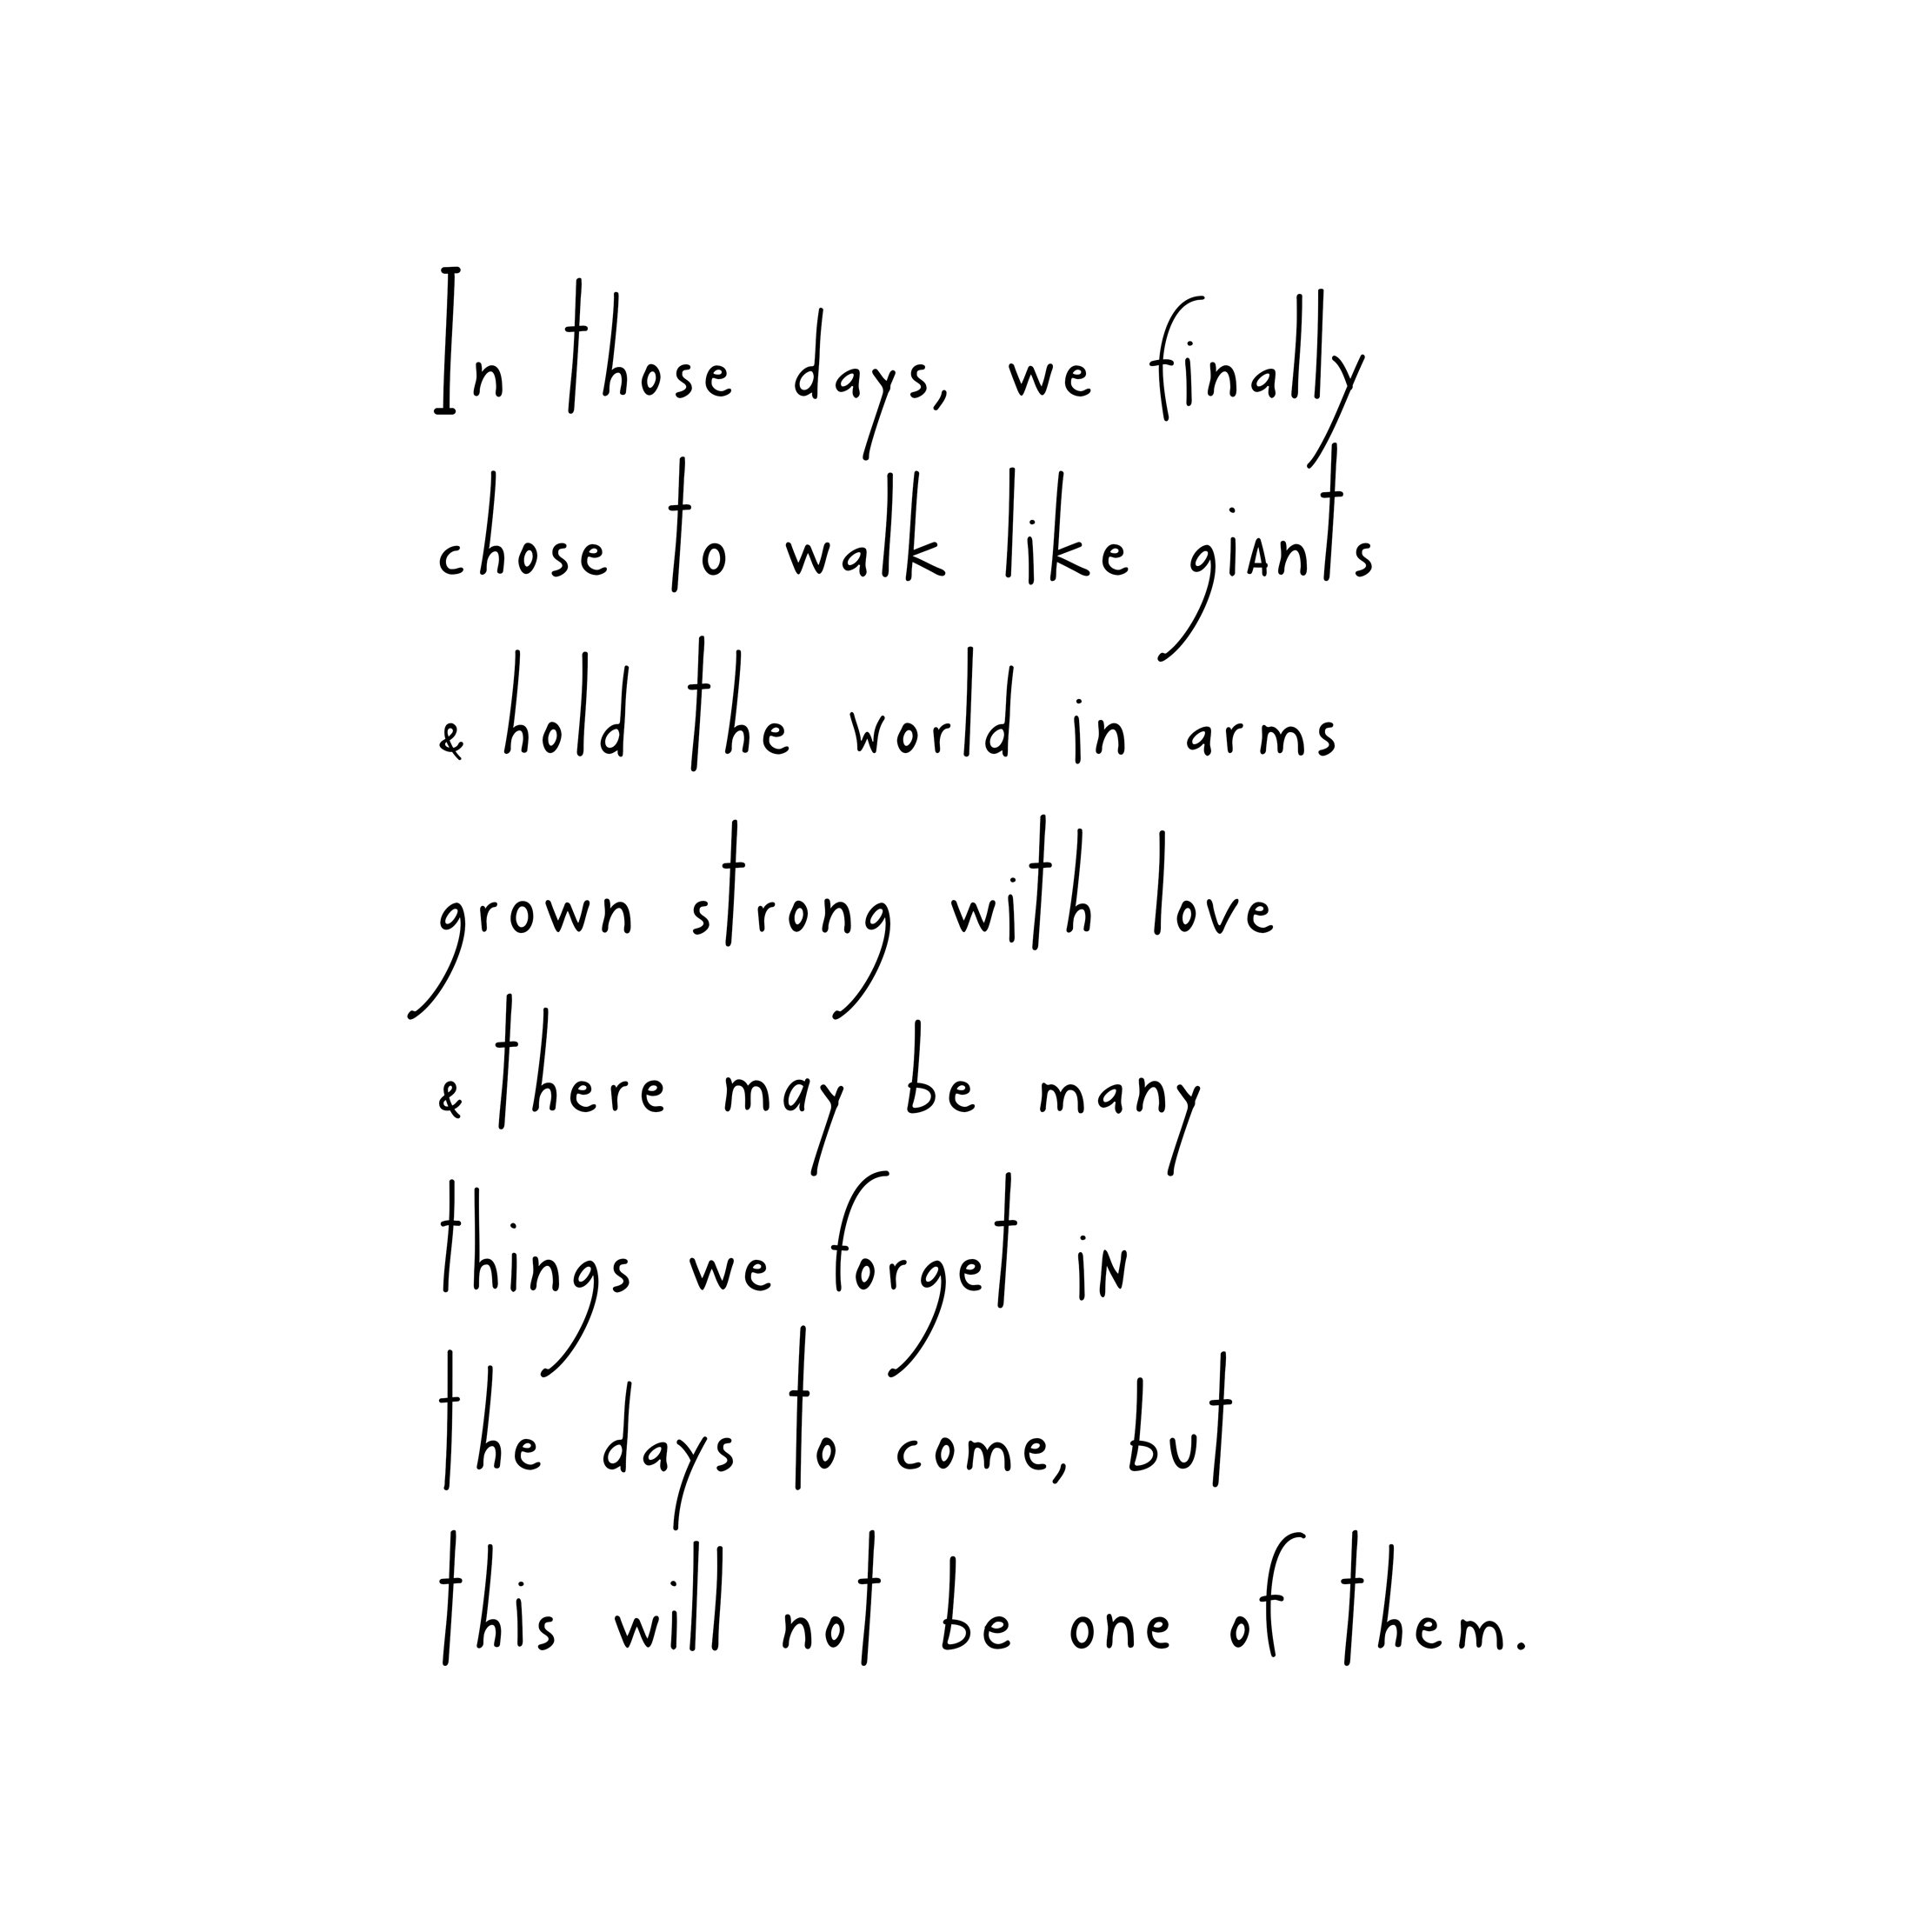 In those days, we finally
chose to walk like giants
& hold the world in arms
grown strong with love
& there may be many
things we forget in
the days to come, but
this will not be one of them.